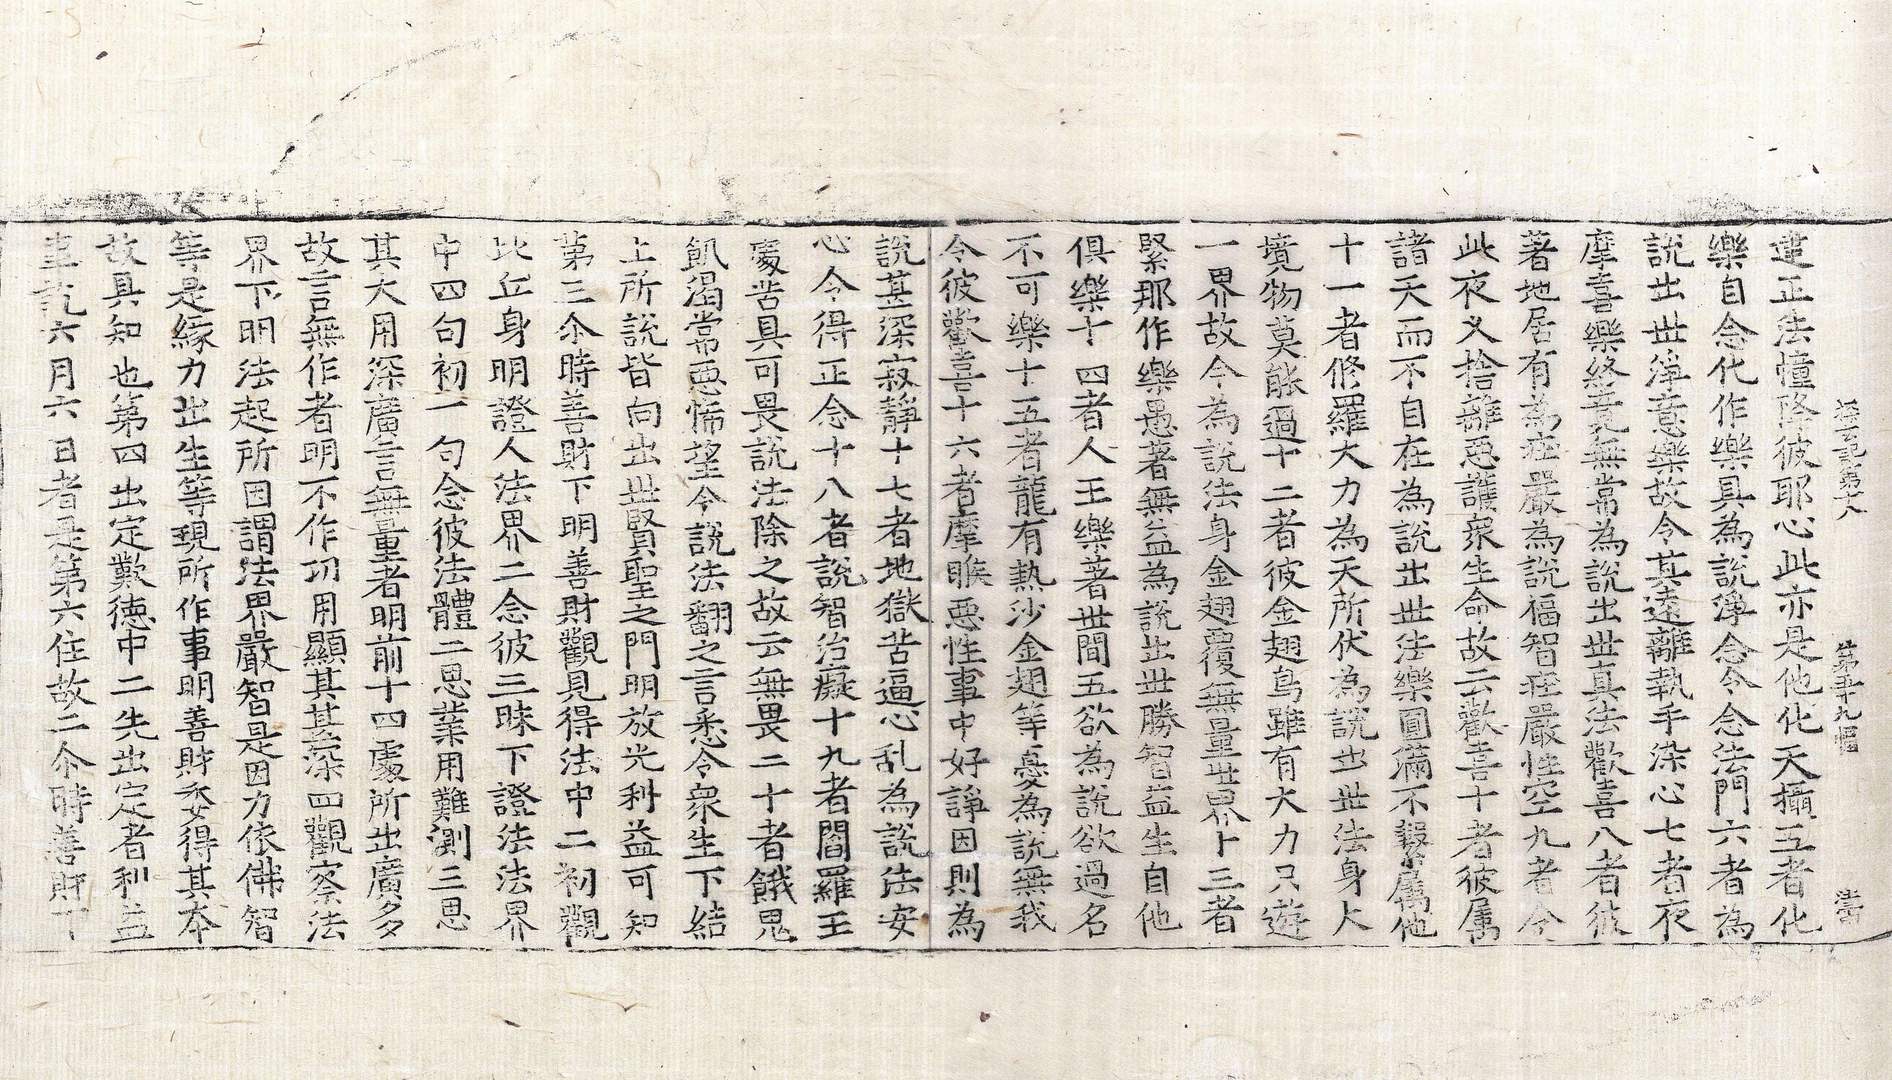 探玄記第十八　第五十九幅　法田
建正法幢降彼耶心此亦是他化天攝五者化
樂自念化作樂具為說淨念令念法門六者為
說出世淨意樂故令其遠離執手染心七者夜
摩喜樂終竟無常為說出世真法歡喜八者彼
著地居有為庄嚴為說福智庄嚴性空九者令
此夜义捨離惡護衆生命故云歡喜十者彼属
諸天而不自在為說出世法樂圓滿不繫属他
十一者修羅大力為天所伏為說出世法身大
境物莫能過十二者彼金翅鳥雖有大力只遊
一界故令為說法身金翅覆無量世界十三者
緊那作樂愚著無益為說出世勝智益生自他
俱樂十四者人王樂著世間五欲為說欲過名
不可樂十五者龍有熱沙金翅等憂為說無我
令彼歡喜十六者摩睺惡性事中好諍因則為
說甚深寂靜十七者地獄苦逼心乱為說法安
心令得正念十八者說智治癡十九者閻羅王
處苦具可畏說法除之故云無畏二十者餓鬼
飢渴常惡悕望今說法翻之言悉令衆生下結
上所說皆向出世賢聖之門明放光利益可知
第三尒時善財下明善財觀見得法中二初觀
比丘身明證人法界二念彼三昧下證法法界
中四句初一句念彼法體二思業用難測三思
其大用深廣言無量者明前十四處所出廣多
故言無作者明不作功用顯其甚深四觀察法
界下明法起所因謂法界嚴智是因力依佛智
等是緣力出生等現所作事明善財安得其本
故具知也第四出定歎德中二先出定者利益
事訖六月六日者是第六住故二尒時善財下